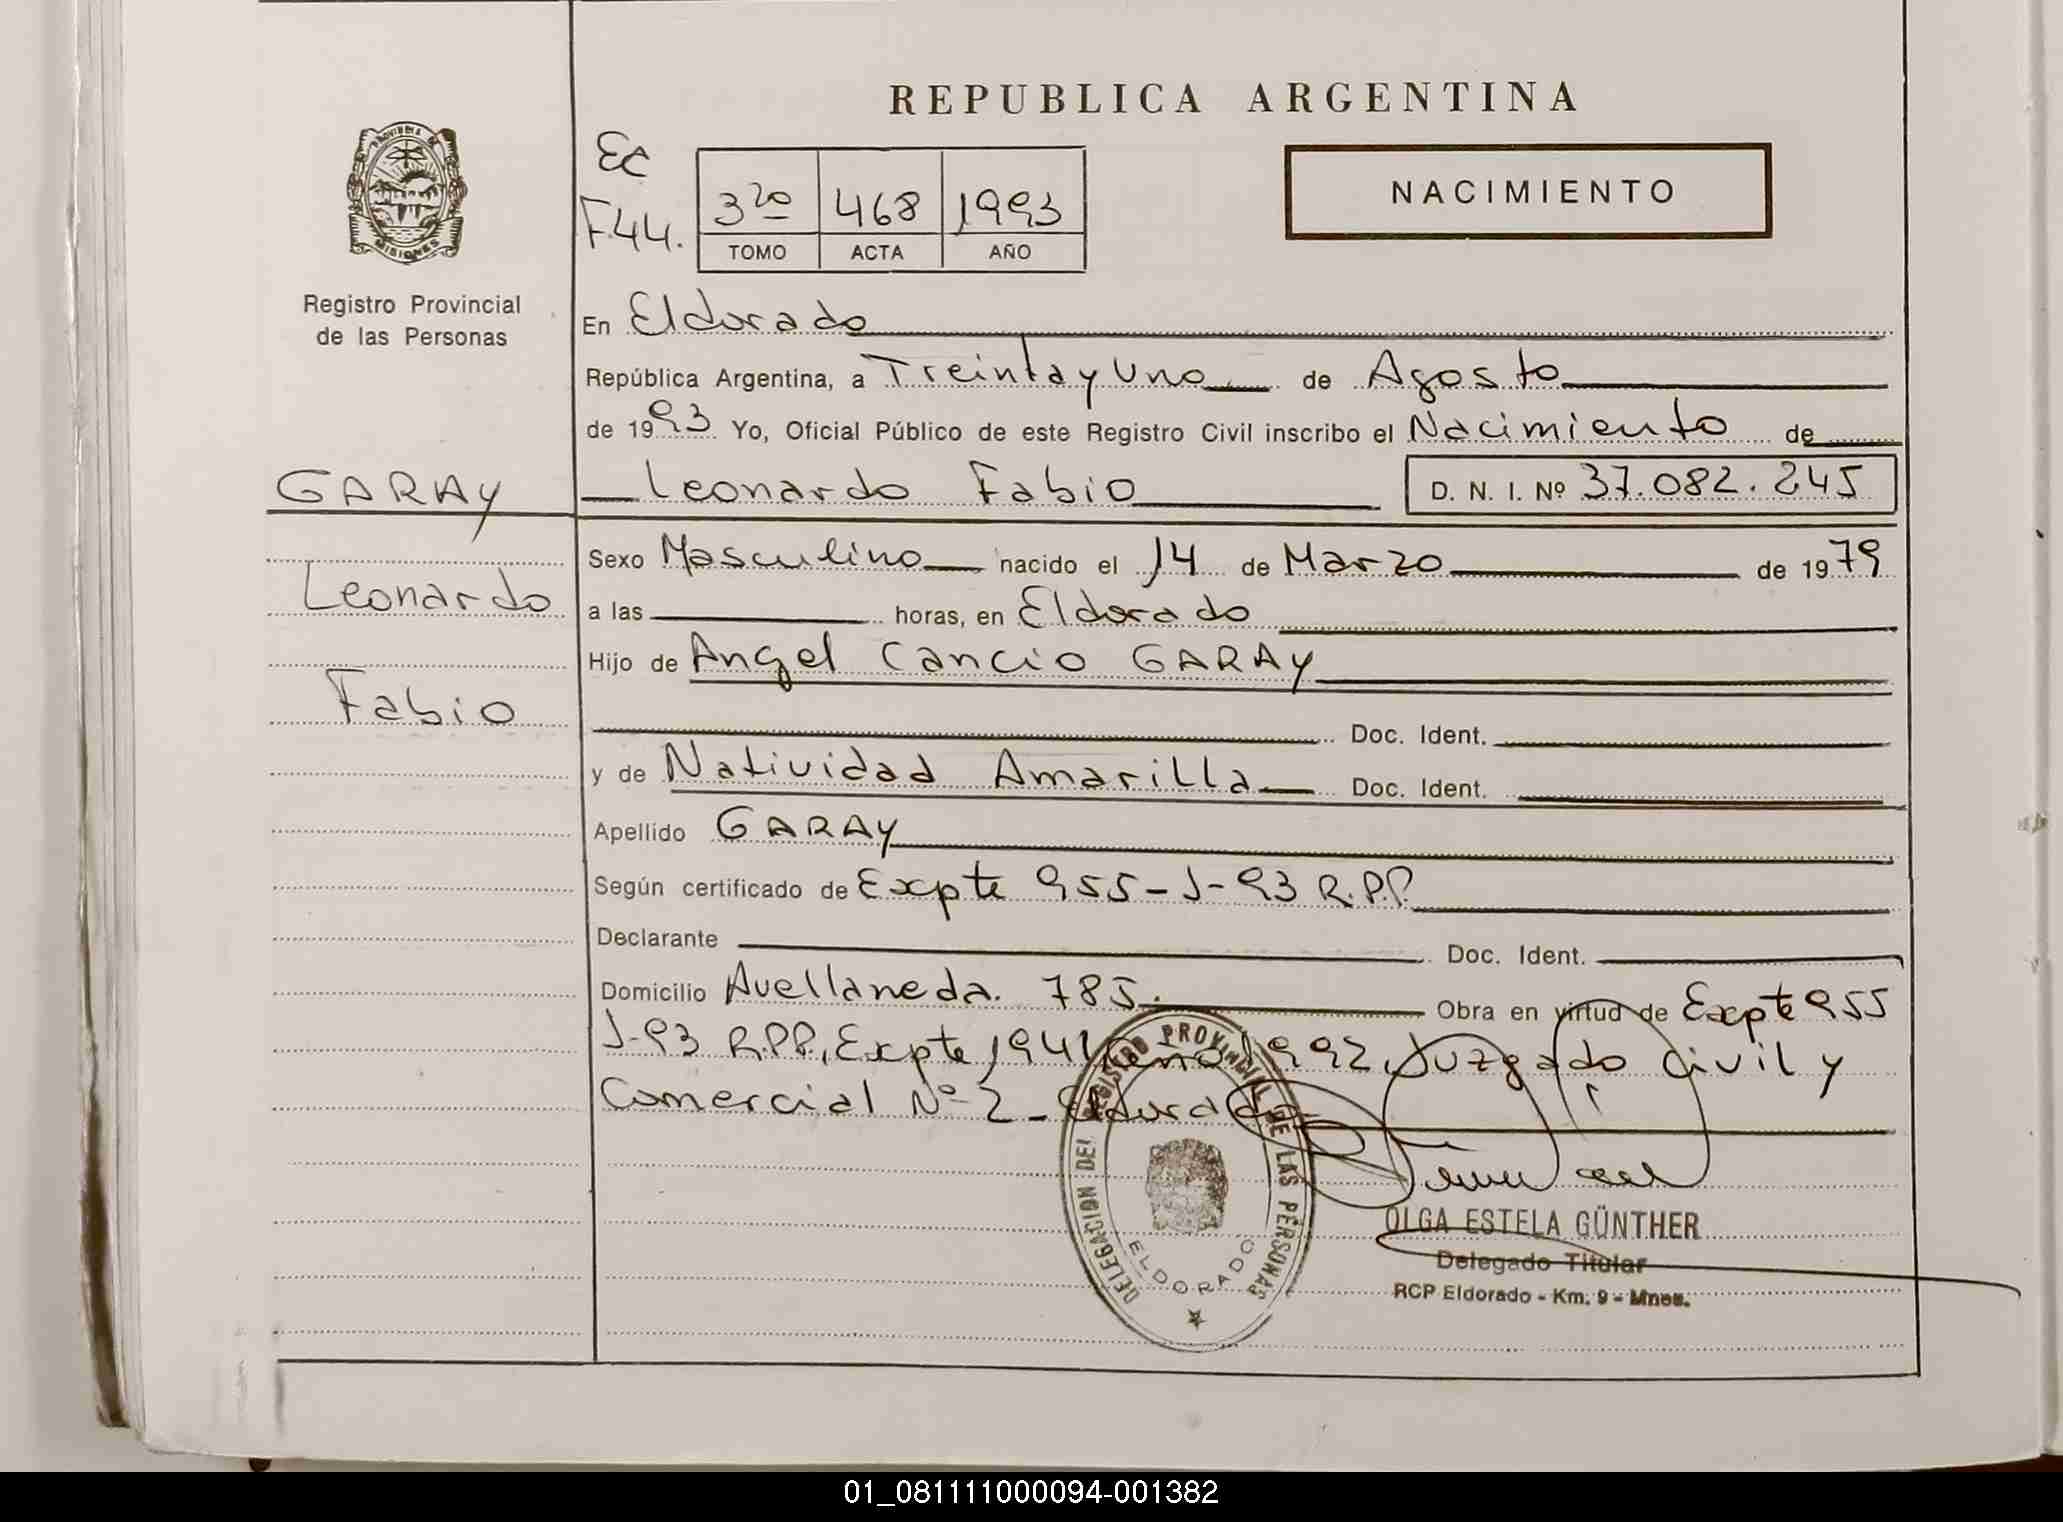 REPUBLICA ARGENTINA
PROVINCIA DE
MISIONES
Registro Provincial
de las Personas
Ec
F44.
3 20 468 1993
TOMO ACTA AÑO
NACIMIENTO
En Eldorado
República Argentina, a Treinta y Uno de Agosto
de 1993 Yo, Oficial Público de este Registro Civil inscribo el Nacimiento de
GARAY
Leonardo
Fabio
Leonardo Fabio D. N. I. Nº 37.082.245
Sexo Masculino nacido el 14 de Marzo de 1979
a las horas, en Eldorado
Hijo de Angel Cancio GARAY
Doc. Ident.
y de Natividad Amarilla Doc. Ident.
Apellido GARAY
Según certificado de Expte 955-J-93 R.P.P.
Declarante Doc. Ident.
Domicilio Avellaneda. 785. Obra en virtud de Expte 955
J-93 R.P.P., Expte 1941 año 1992, Juzgado Civil y
Comercial Nº 2 - Eldorado
DELEGACION DEL REGISTRO PROVINCIAL DE LAS PERSONAS
ELDORADO
OLGA ESTELA GÜNTHER
Delegado Titular
RCP Eldorado - Km. 9 - Mnes.
01_081111000094-001382